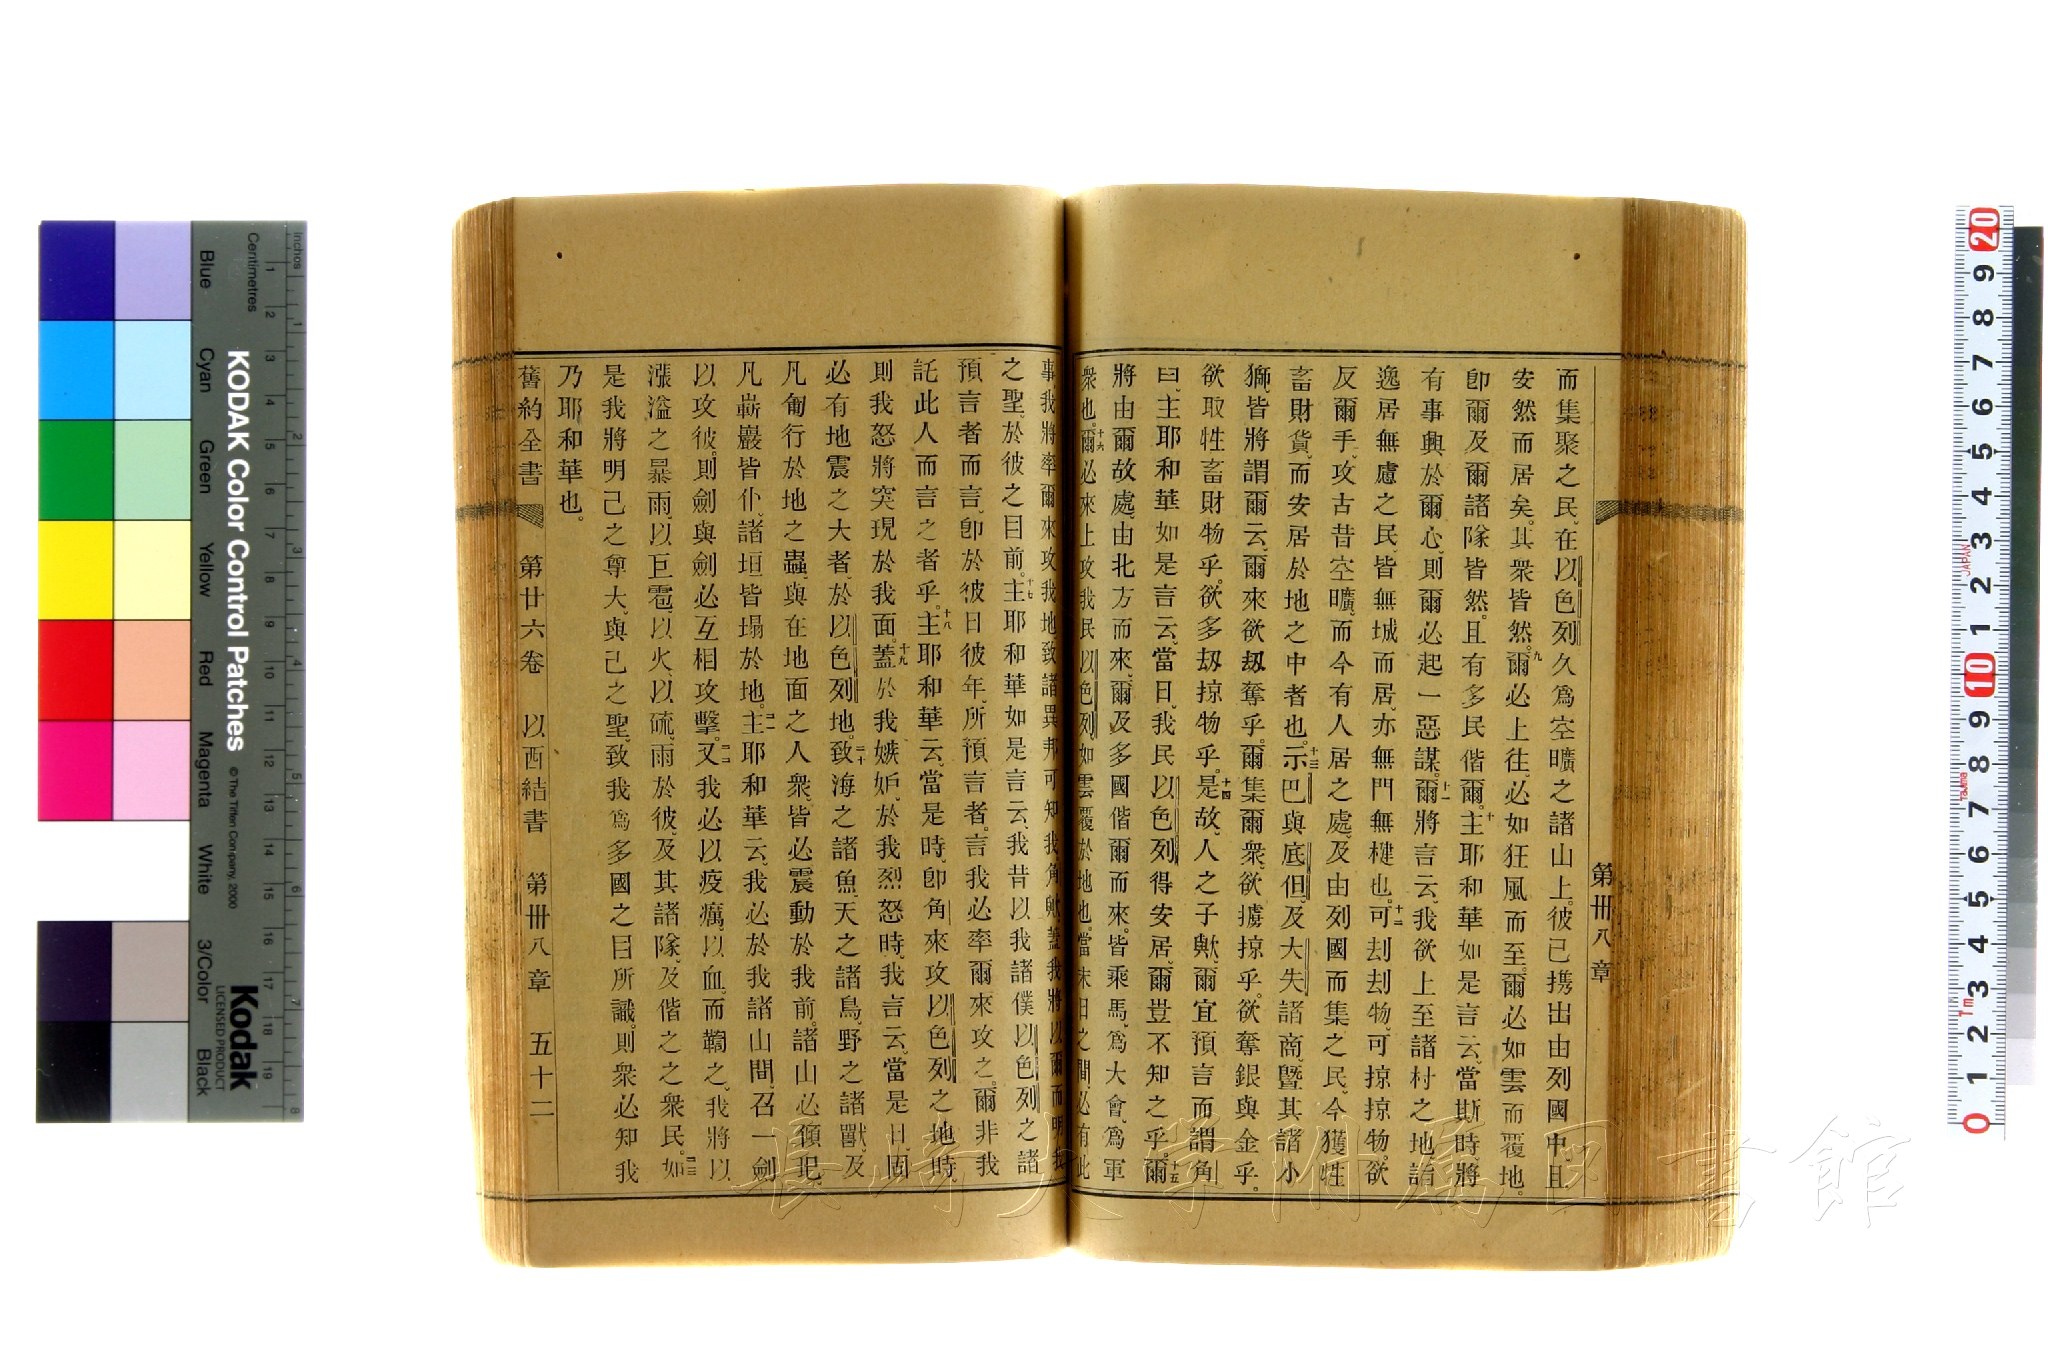 第卌八章
而集聚之民、在以色列久爲空曠之諸山上。彼已攜出由列國中、且
安然而居矣。其衆皆然。九爾必上往、必如狂風而至。爾必如雲而覆地。
卽爾及爾諸隊皆然。且有多民偕爾。十主耶和華如是言云、當斯時、將
有事興於爾心、則爾必起一惡謀。十一爾將言云、我欲上至諸村之地、詣
逸居無慮之民、皆無城而居、亦無門無楗也。十二可刦刦物、可掠掠物。欲
反爾手、攻古昔空曠、而今有人居之處、及由列國而集之民、今獲牲
畜財貨、而安居於地之中者也。十三示巴與底但、及大失諸商、曁其諸小
獅、皆將謂爾云、爾來欲刼奪乎。爾集爾衆、欲擄掠乎。欲奪銀與金乎。
欲取牲畜財物乎。欲多刼掠物乎。十四是故、人之子歟、爾宜預言而謂角
曰、主耶和華如是言云、當日、我民以色列得安居、爾豈不知之乎。十五爾
將由爾故處、由北方而來、爾及多國偕爾而來、皆乘馬、爲大會、爲軍
衆也。十六爾必來上攻我民以色列、如雲覆於地也。當末日之間、必有此
事、我將率爾來攻我地、致諸異邦可知我、角歟、蓋我將以爾而明我
之聖、於彼之目前。十七主耶和華如是言云、我昔以我諸僕以色列之諸
預言者而言、卽於彼日彼年、所預言者。言我必率爾來攻之。爾非我
託此人而言之者乎。十八主耶和華云、當是時、卽角來攻以色列之地時、
則我怒將突現於我面。十九蓋於我嫉妒、於我烈怒時、我言云、當是日、固
必有地震之大者、於以色列地。二十致海之諸魚、天之諸鳥、野之諸獸、及
凡匍行於地之蟲、與在地面之人衆、皆必震動於我前。諸山必傾圮、
凡嶄巖皆仆、諸垣皆塌於地。二一主耶和華云、我必於我諸山間、召一劍
以攻彼。則劍與劍必互相攻擊。二二又我必以疫癘、以血、而鞫之、我將以
漲溢之暴雨、以巨雹、以火、以硫、雨於彼、及其諸隊、及偕之之衆民。二三如
是我將明己之尊大、與己之聖、致我爲多國之目所識、則衆必知我
乃耶和華也。
舊約全書 第廿六卷 以西結書 第卌八章 五十二
長崎大学附属図書館
KODAK Color Control Patches
© The Tiffen Company, 2000
Kodak
LICENSED PRODUCT
Inches
Centimetres
Blue
Cyan
Green
Yellow
Red
Magenta
White
3/Color
Black
JAPAN
Tajima
1m